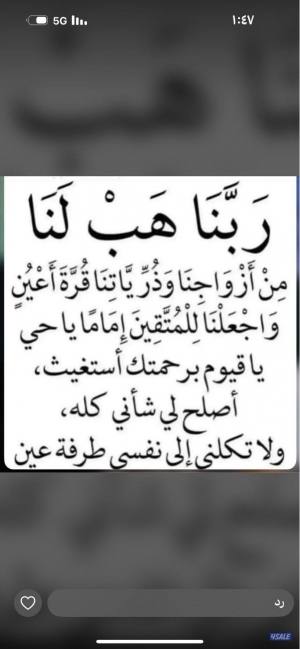 5G ١:٤٧
رَبَّنَا هَبْ لَنَا
مِنْ أَزْوَاجِنَا وَذُرِّيَّاتِنَا قُرَّةَ أَعْيُنٍ
وَاجْعَلْنَا لِلْمُتَّقِينَ إِمَامًا يا حي
يا قيوم برحمتك أستغيث،
أصلح لي شأني كله،
ولا تكلني إلى نفسي طرفة عين
رد
4SALE